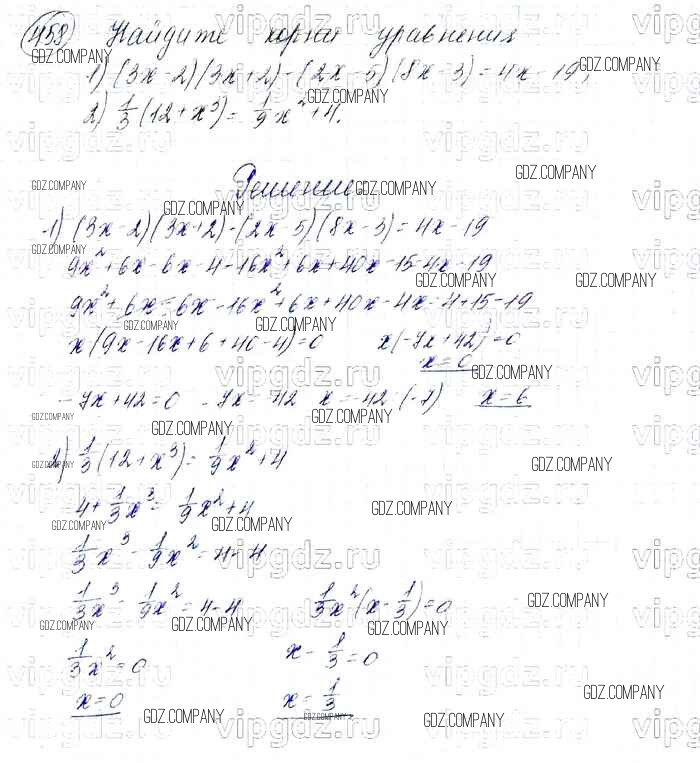 458 Найдите корни уравнения
1) (3x-2)(3x+2)-(2x-5)(8x-3)=4x-19;
2) 1/3(12+x³)=1/9x²+4.
Решение
1) (3x-2)(3x+2)-(2x-5)(8x-3)=4x-19
9x²+6x-6x-4-16x²+6x+40x-15=4x-19
9x²+6x-6x-16x²+6x+40x-4x=4+15-19
x(9x-16x+6+40-4)=0 x(-7x+42)=0
x=0
-7x+42=0 -7x=-42 x=-42:(-7) x=6
2) 1/3(12+x³)=1/9x²+4
4+1/3x³=1/9x²+4
1/3x³-1/9x²=4-4
1/3x³-1/9x²=4-4 1/3x²(x-1/3)=0
1/3x²=0 x-1/3=0
x=0 x=1/3
GDZ.COMPANY
vipgdz.ru